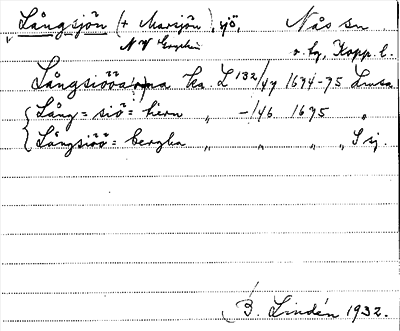 Långsjön (+ Marsjön), sjö, Nås sn
N V Grycken v. bg, Kopp. l.
Långsiööarna ka. L 132/47 1674-75 Lusa
Lång=siö=hirn " -146 1675 "
Långsiöö=bergha " " " " S ij.
B. Lindén 1932.